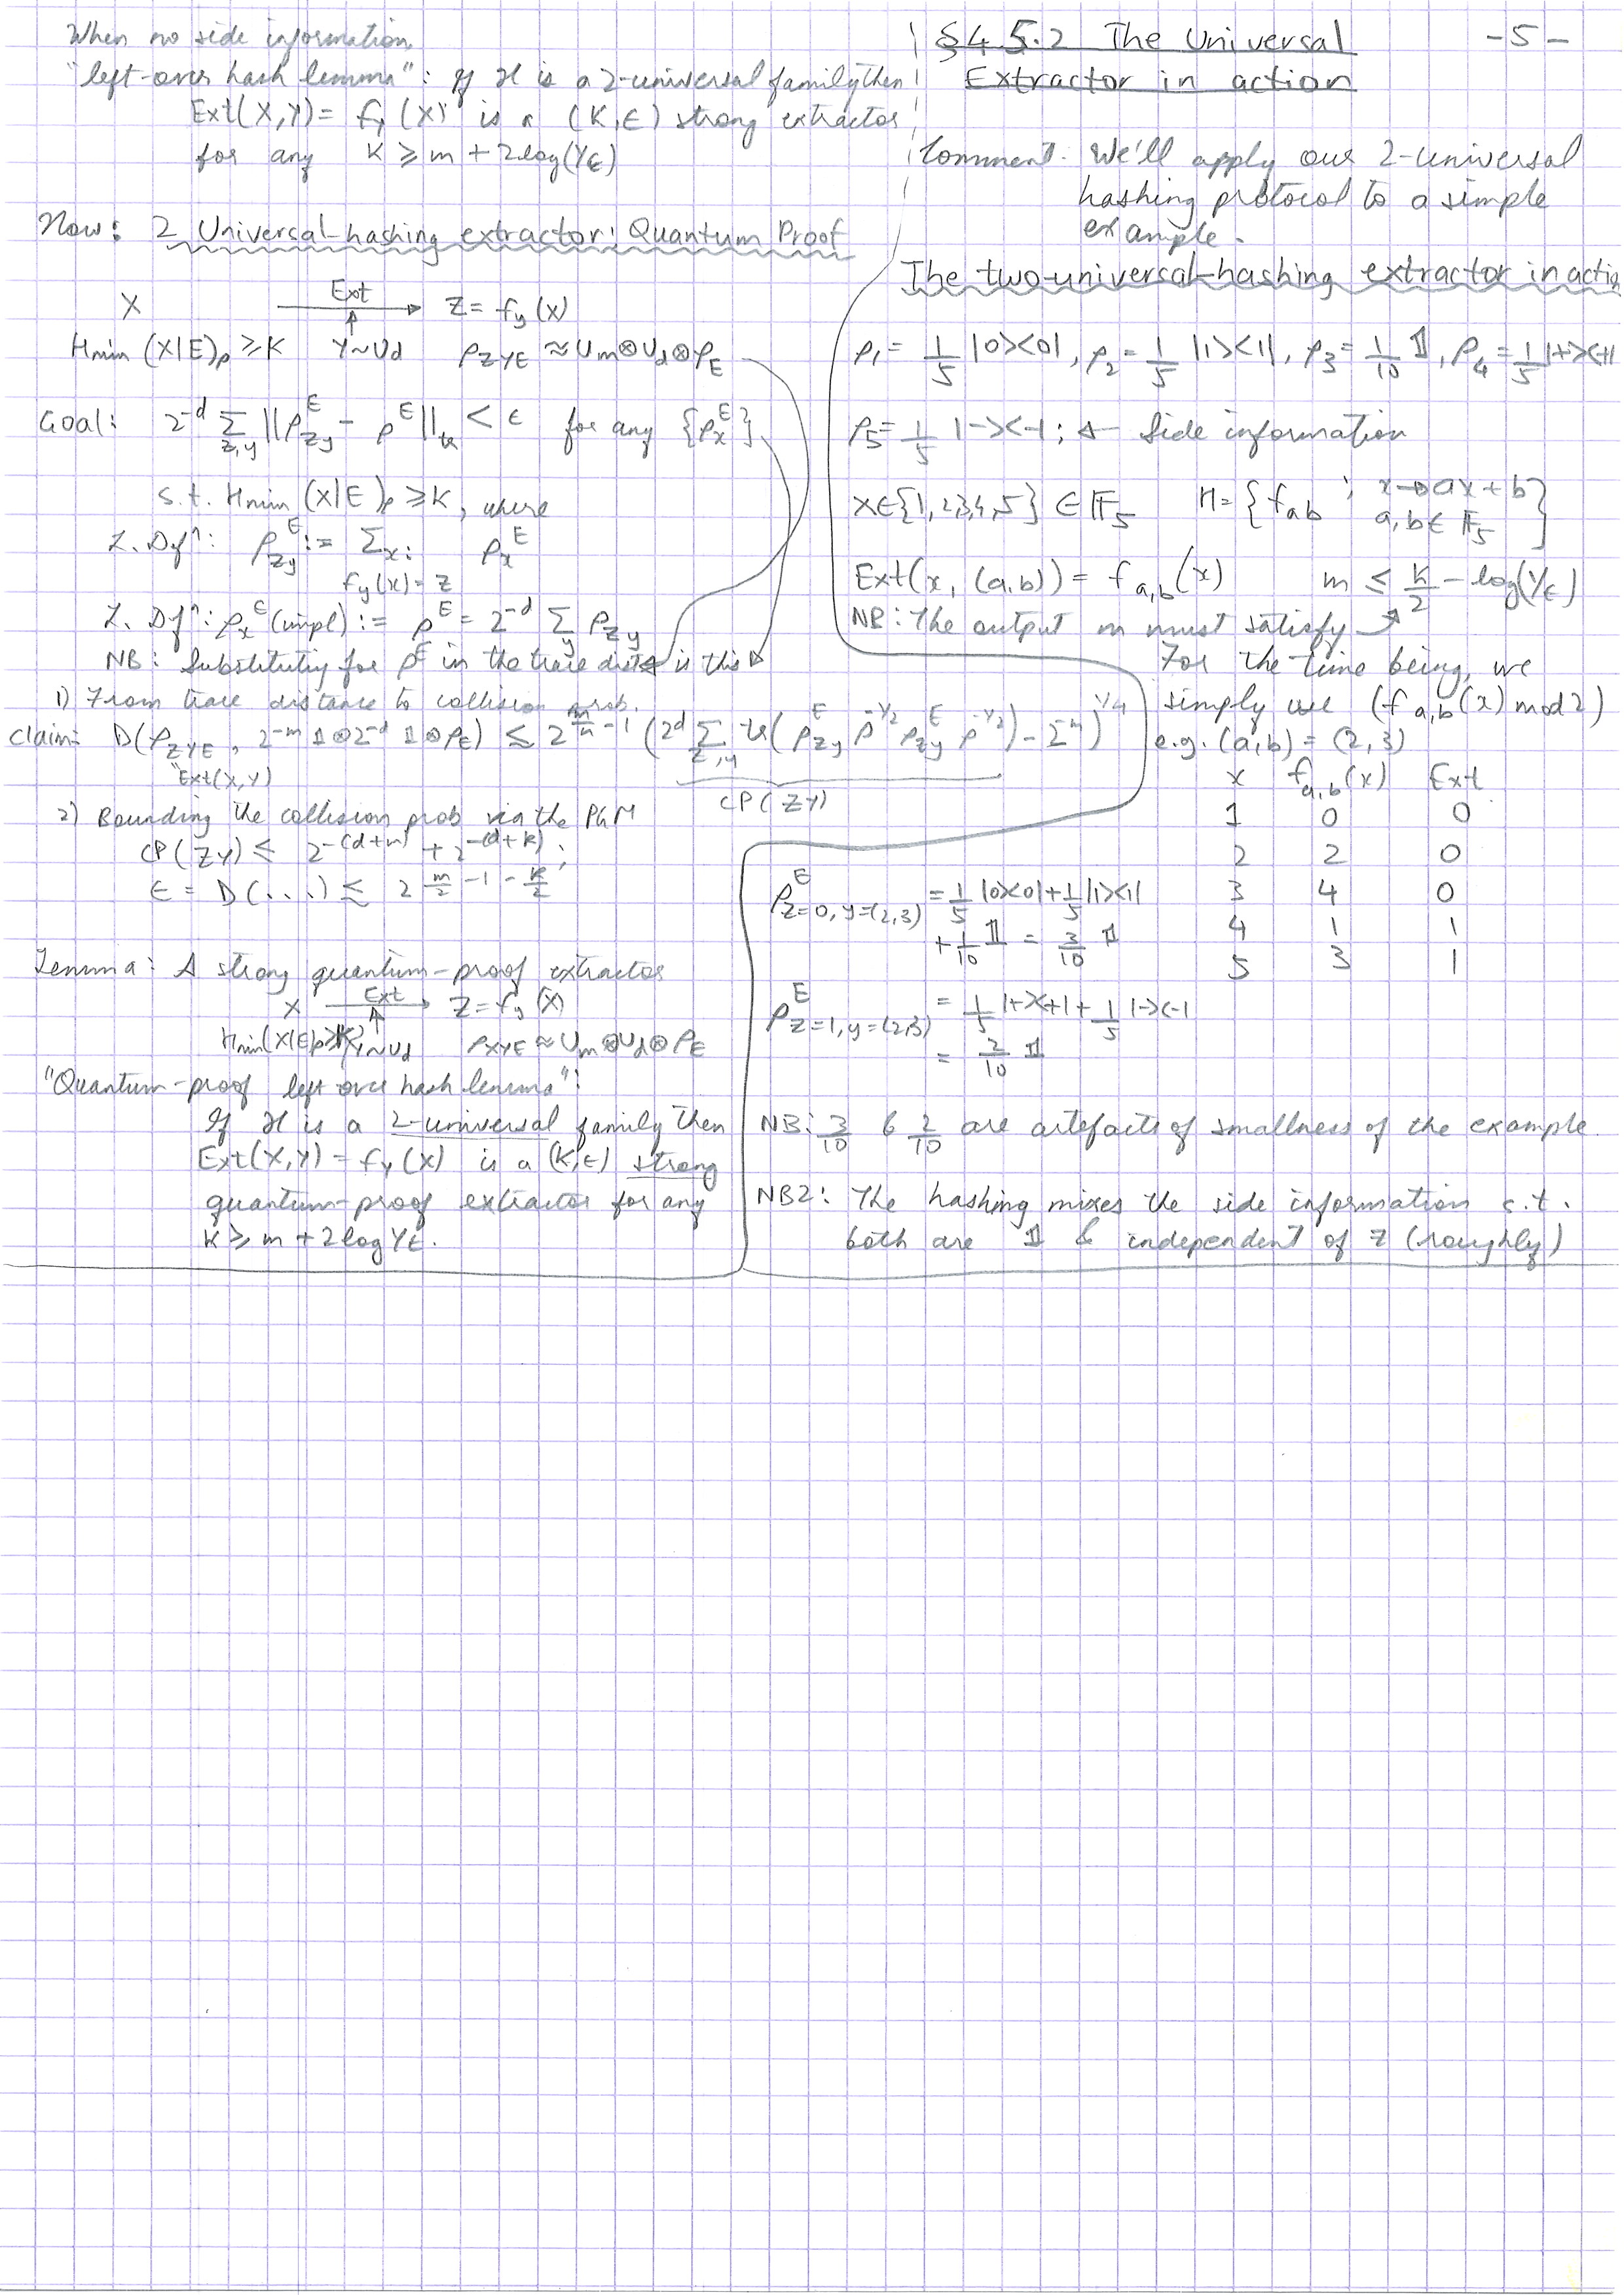 When no side information
"left-over hash lemma": If H is a 2-universal family then
Ext(X,Y) = f_Y(X) is a (K,ε) strong extractor
for any K ≥ m + 2log(1/ε)
Now: 2 Universal-hashing extractor: Quantum Proof
X —Ext→ Z = f_y(x)
Hmin(X|E)_ρ ≥ K Y~U_d ρ_ZYE ≈ U_m⊗U_d⊗ρ_E
Goal: 2^-d Σ_z,y ||ρ_zy^E - ρ^E||_tr < ε for any {ρ_x^E}
s.t. Hmin(X|E)_ρ ≥ K, where
1. Dfⁿ: ρ_zy^E := Σ_x: ρ_x^E
f_y(x) = z
2. Dfⁿ: ρ_x^E (impl) := ρ^E = 2^-d Σ_y ρ_zy
NB: Substituting for ρ^E in the trace dist is this
1) From trace distance to collision prob.
Claim: D(ρ_ZYE, 2^-m 𝟙⊗2^-d 𝟙⊗ρ_E) ≤ 2^(m/2 -1) (2^d Σ_z,y tr(ρ_zy^E ρ^-1/2 ρ_zy^E ρ^-1/2) - 2^-m)^1/4
"Ext(X,Y)
CP(ZY)
2) Bounding the collision prob via the PGM
CP(ZY) ≤ 2^-(d+m) + 2^-(d+k);
ε = D(...) ≤ 2^(m/2 -1 - k/2)
Lemma: A strong quantum-proof extractor
X —Ext→ Z = f_y(X)
Hmin(X|E)_ρ ≥ K, Y~U_d ρ_XYE ≈ U_m⊗U_d⊗ρ_E
"Quantum-proof left over hash lemma":
If H is a 2-universal family then
Ext(X,Y) = f_Y(X) is a (K,ε) strong
quantum-proof extractor for any
K ≥ m + 2log 1/ε.
§4.5.2 The Universal -5-
Extractor in action
Comment: We'll apply our 2-universal
hashing protocol to a simple
example.
The two-universal-hashing extractor in actio
ρ_1 = 1/5 |0><0|, ρ_2 = 1/5 |1><1|, ρ_3 = 1/10 𝟙, ρ_4 = 1/5 |+><+|
ρ_5 = 1/5 |-><-|; ← Side information
X∈{1,2,3,4,5} ∈ 𝔽_5 H = {f_ab ; x→ax+b
a,b ∈ 𝔽_5}
Ext(x, (a,b)) = f_a,b(x) m ≤ K/2 - log(1/ε)
NB: The output m must satisfy
For the time being, we
simply use (f_a,b(x) mod 2)
e.g. (a,b) = (2,3)
x f_a,b(x) Ext
1 0 0
2 2 0
3 4 0
4 1 1
5 3 1
ρ^E_z=0,y=(2,3) = 1/5 |0><0| + 1/5 |1><1|
+ 1/10 𝟙 = 3/10 𝟙
ρ^E_z=1,y=(2,3) = 1/5 |+><+| + 1/5 |-><-|
= 2/10 𝟙
NB: 3/10 & 2/10 are artefacts of smallness of the example
NB2: The hashing mixes the side information s.t.
both are 𝟙 & independent of z (roughly)